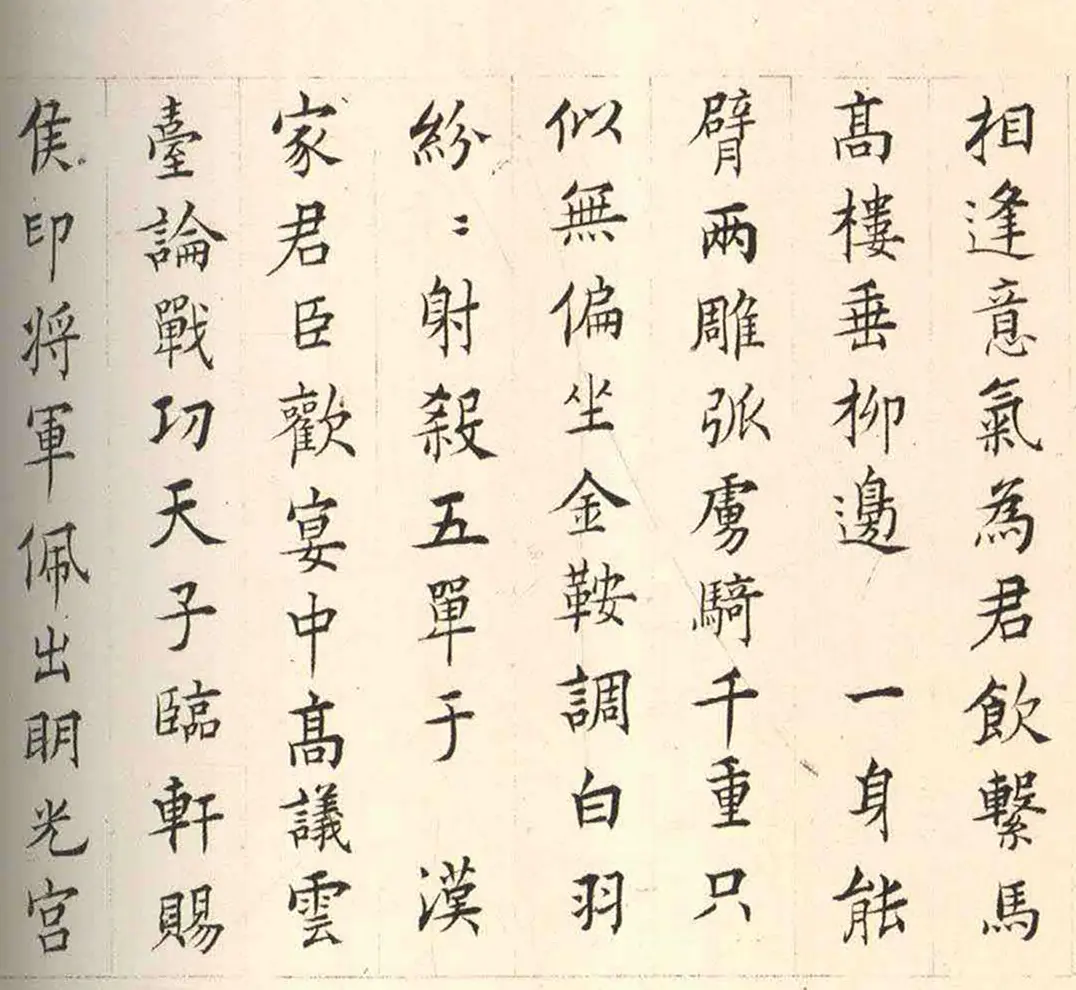 相逢意氣為君飲繫馬
髙樓垂柳邊　一身能
臂兩雕弧虜騎千重只
似無偏坐金鞍調白羽
紛〻射殺五單于　漢
家君臣歡宴中髙議雲
臺論戰功天子臨軒賜
侯印将軍佩出明光宮